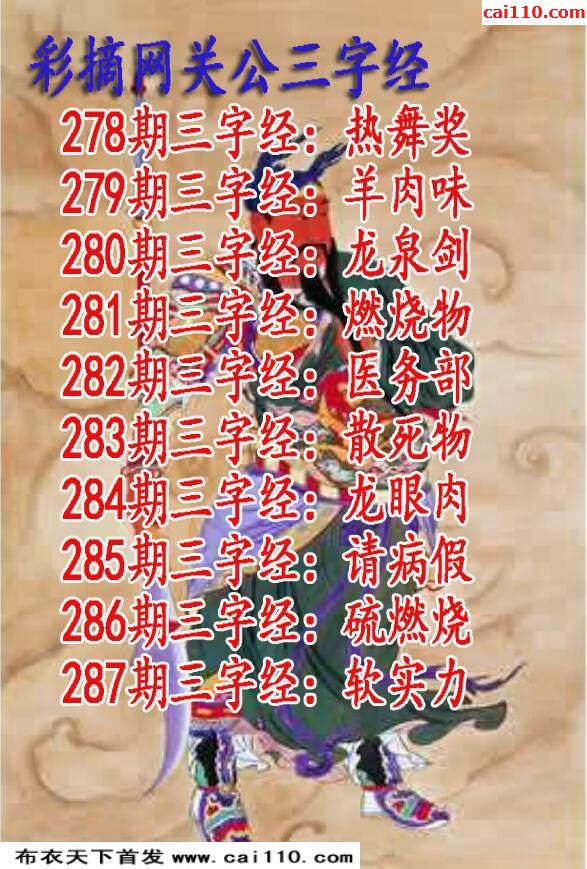 cai110.com
彩摘网关公三字经
278期三字经：热舞奖
279期三字经：羊肉味
280期三字经：龙泉剑
281期三字经：燃烧物
282期三字经：医务部
283期三字经：散死物
284期三字经：龙眼肉
285期三字经：请病假
286期三字经：硫燃烧
287期三字经：软实力
布衣天下首发 www.cai110.com